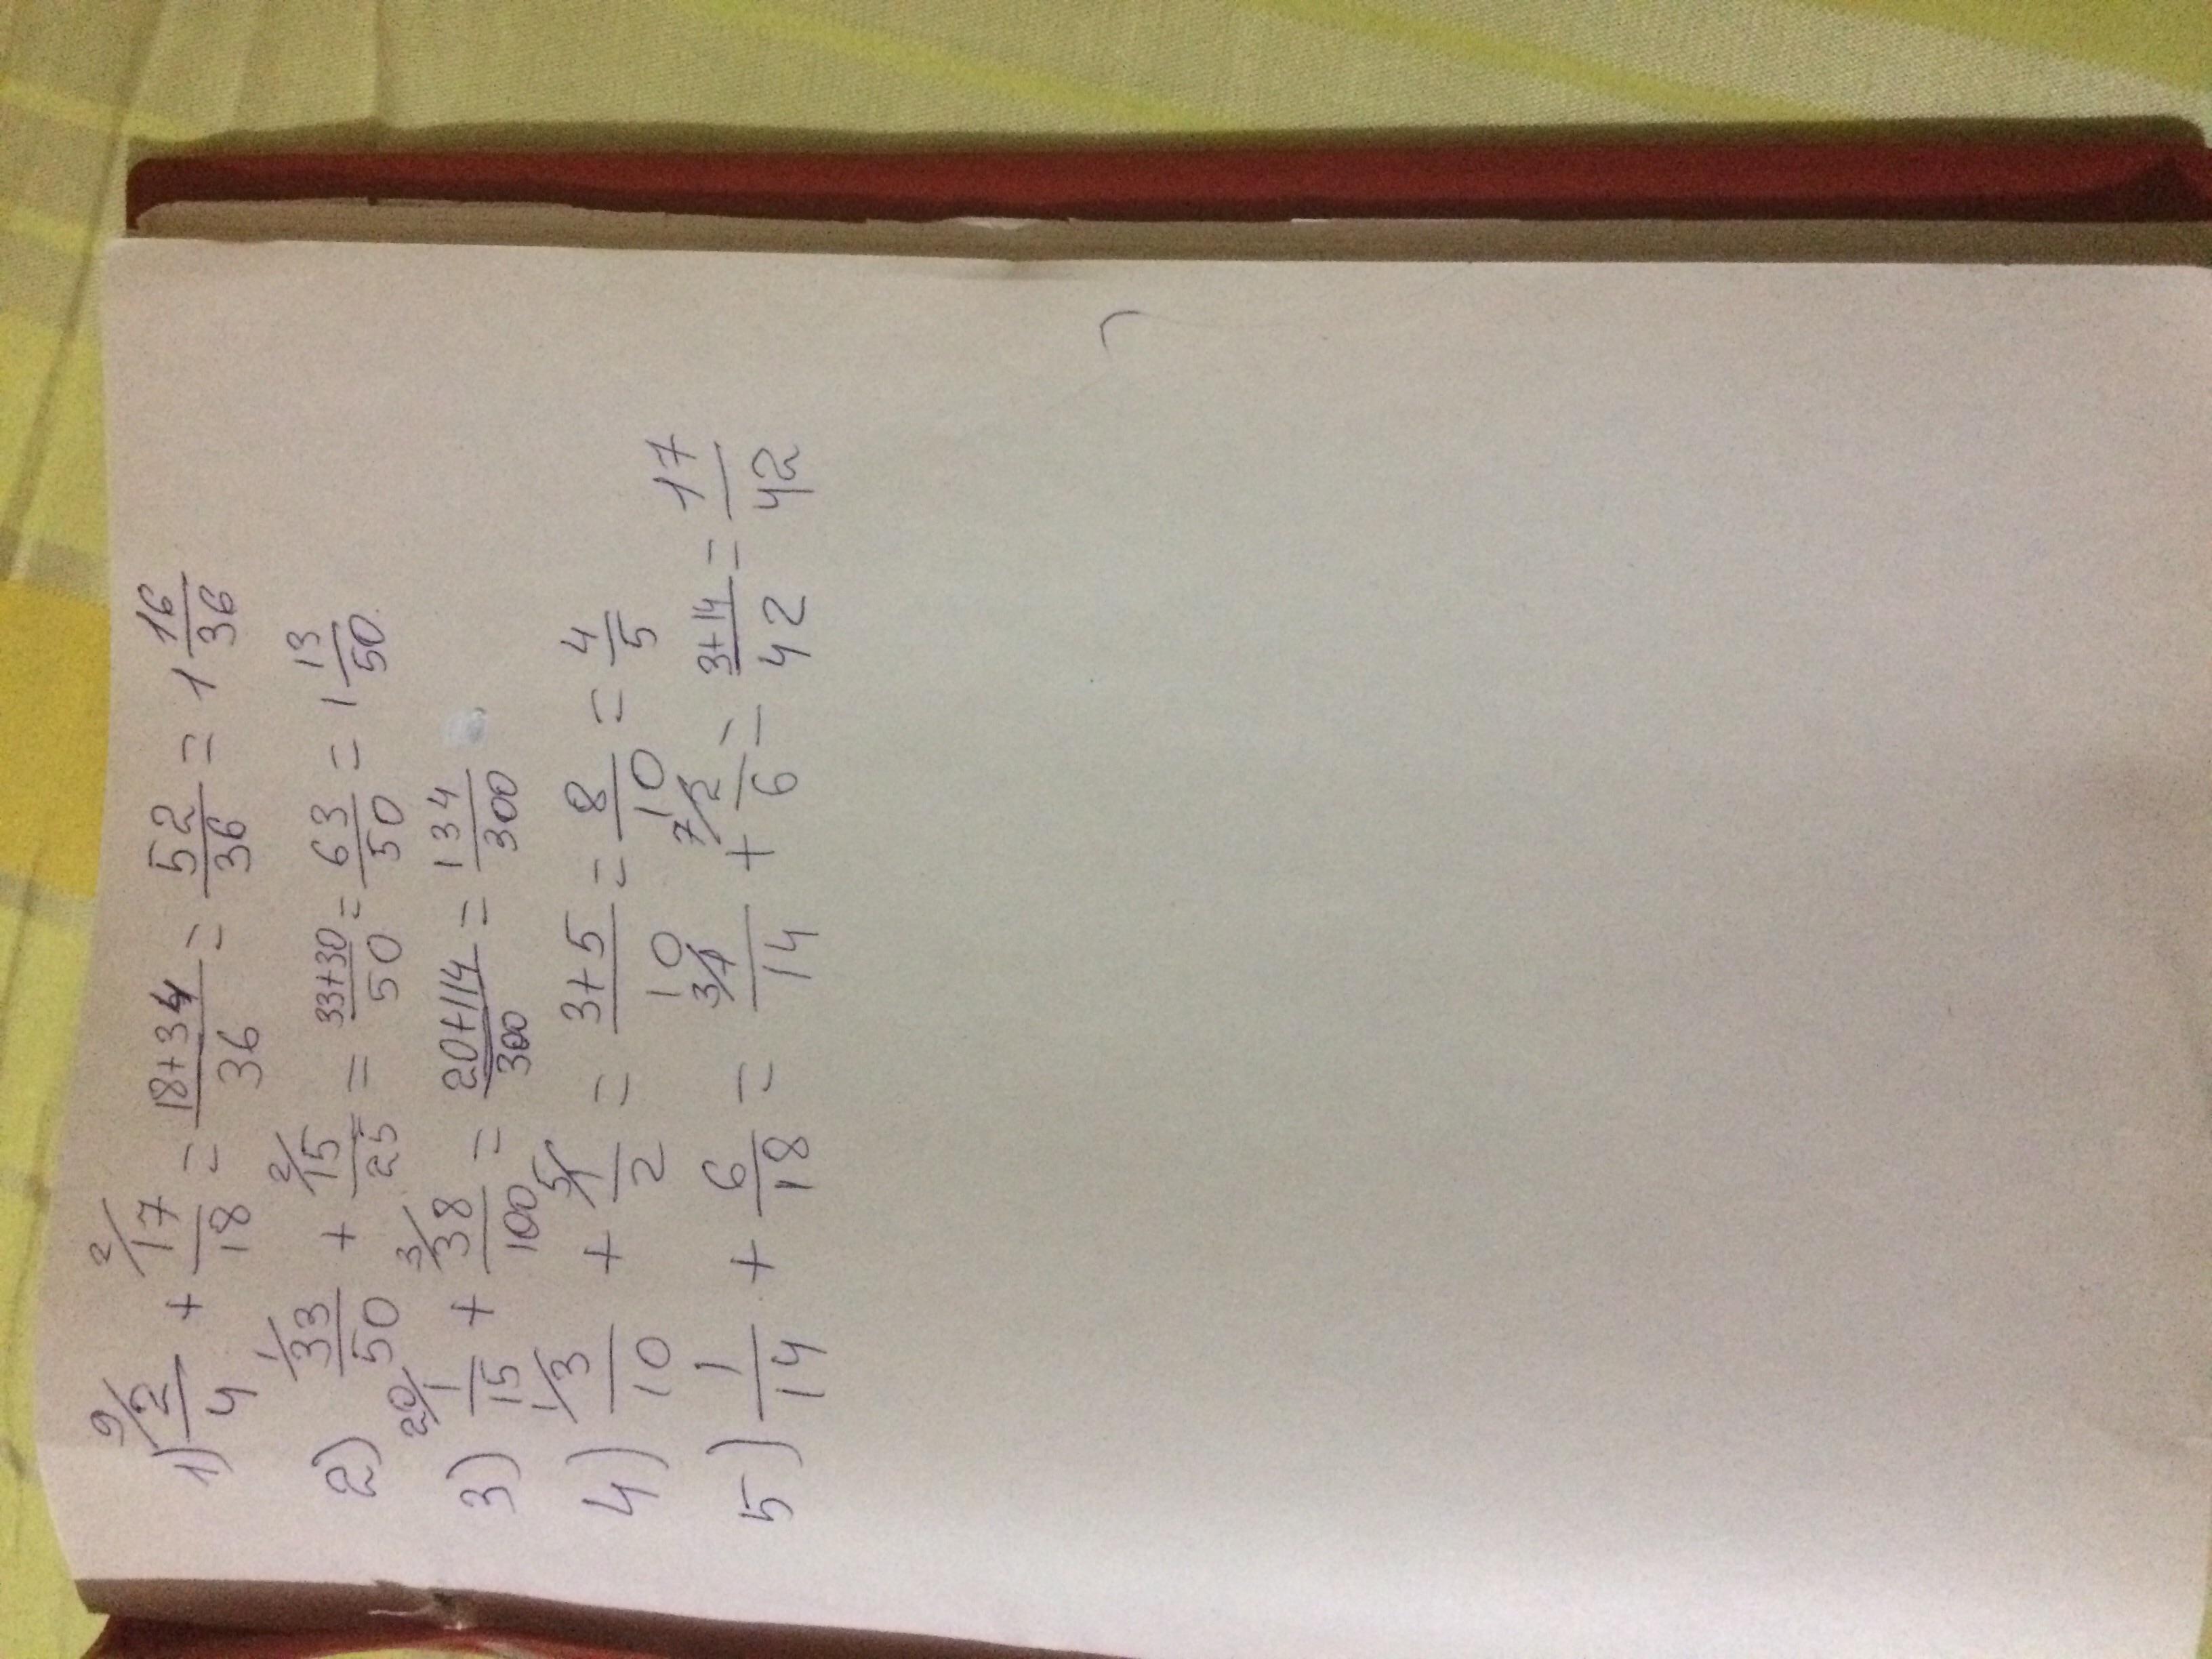 1) 9/2/4 + 2/17/18 = 18+34/36 = 52/36 = 1 16/36
2) 1/33/50 + 2/15/25 = 33+30/50 = 63/50 = 1 13/50
3) 20/1/15 + 3/38/100 = 20+114/300 = 134/300
4) 1/3/10 + 5/1/2 = 3+5/10 = 8/10 = 4/5
5) 1/14 + 6/18 = 3/1/14 + 7/2/6 = 3+14/42 = 17/42